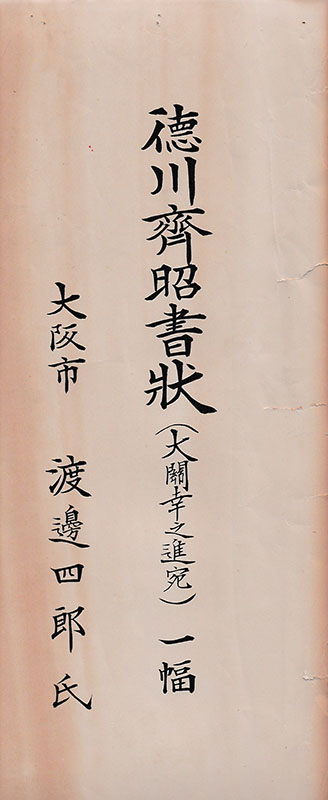 德川齊昭書狀（大關幸之進宛）一幅
大阪市　渡邊四郎氏